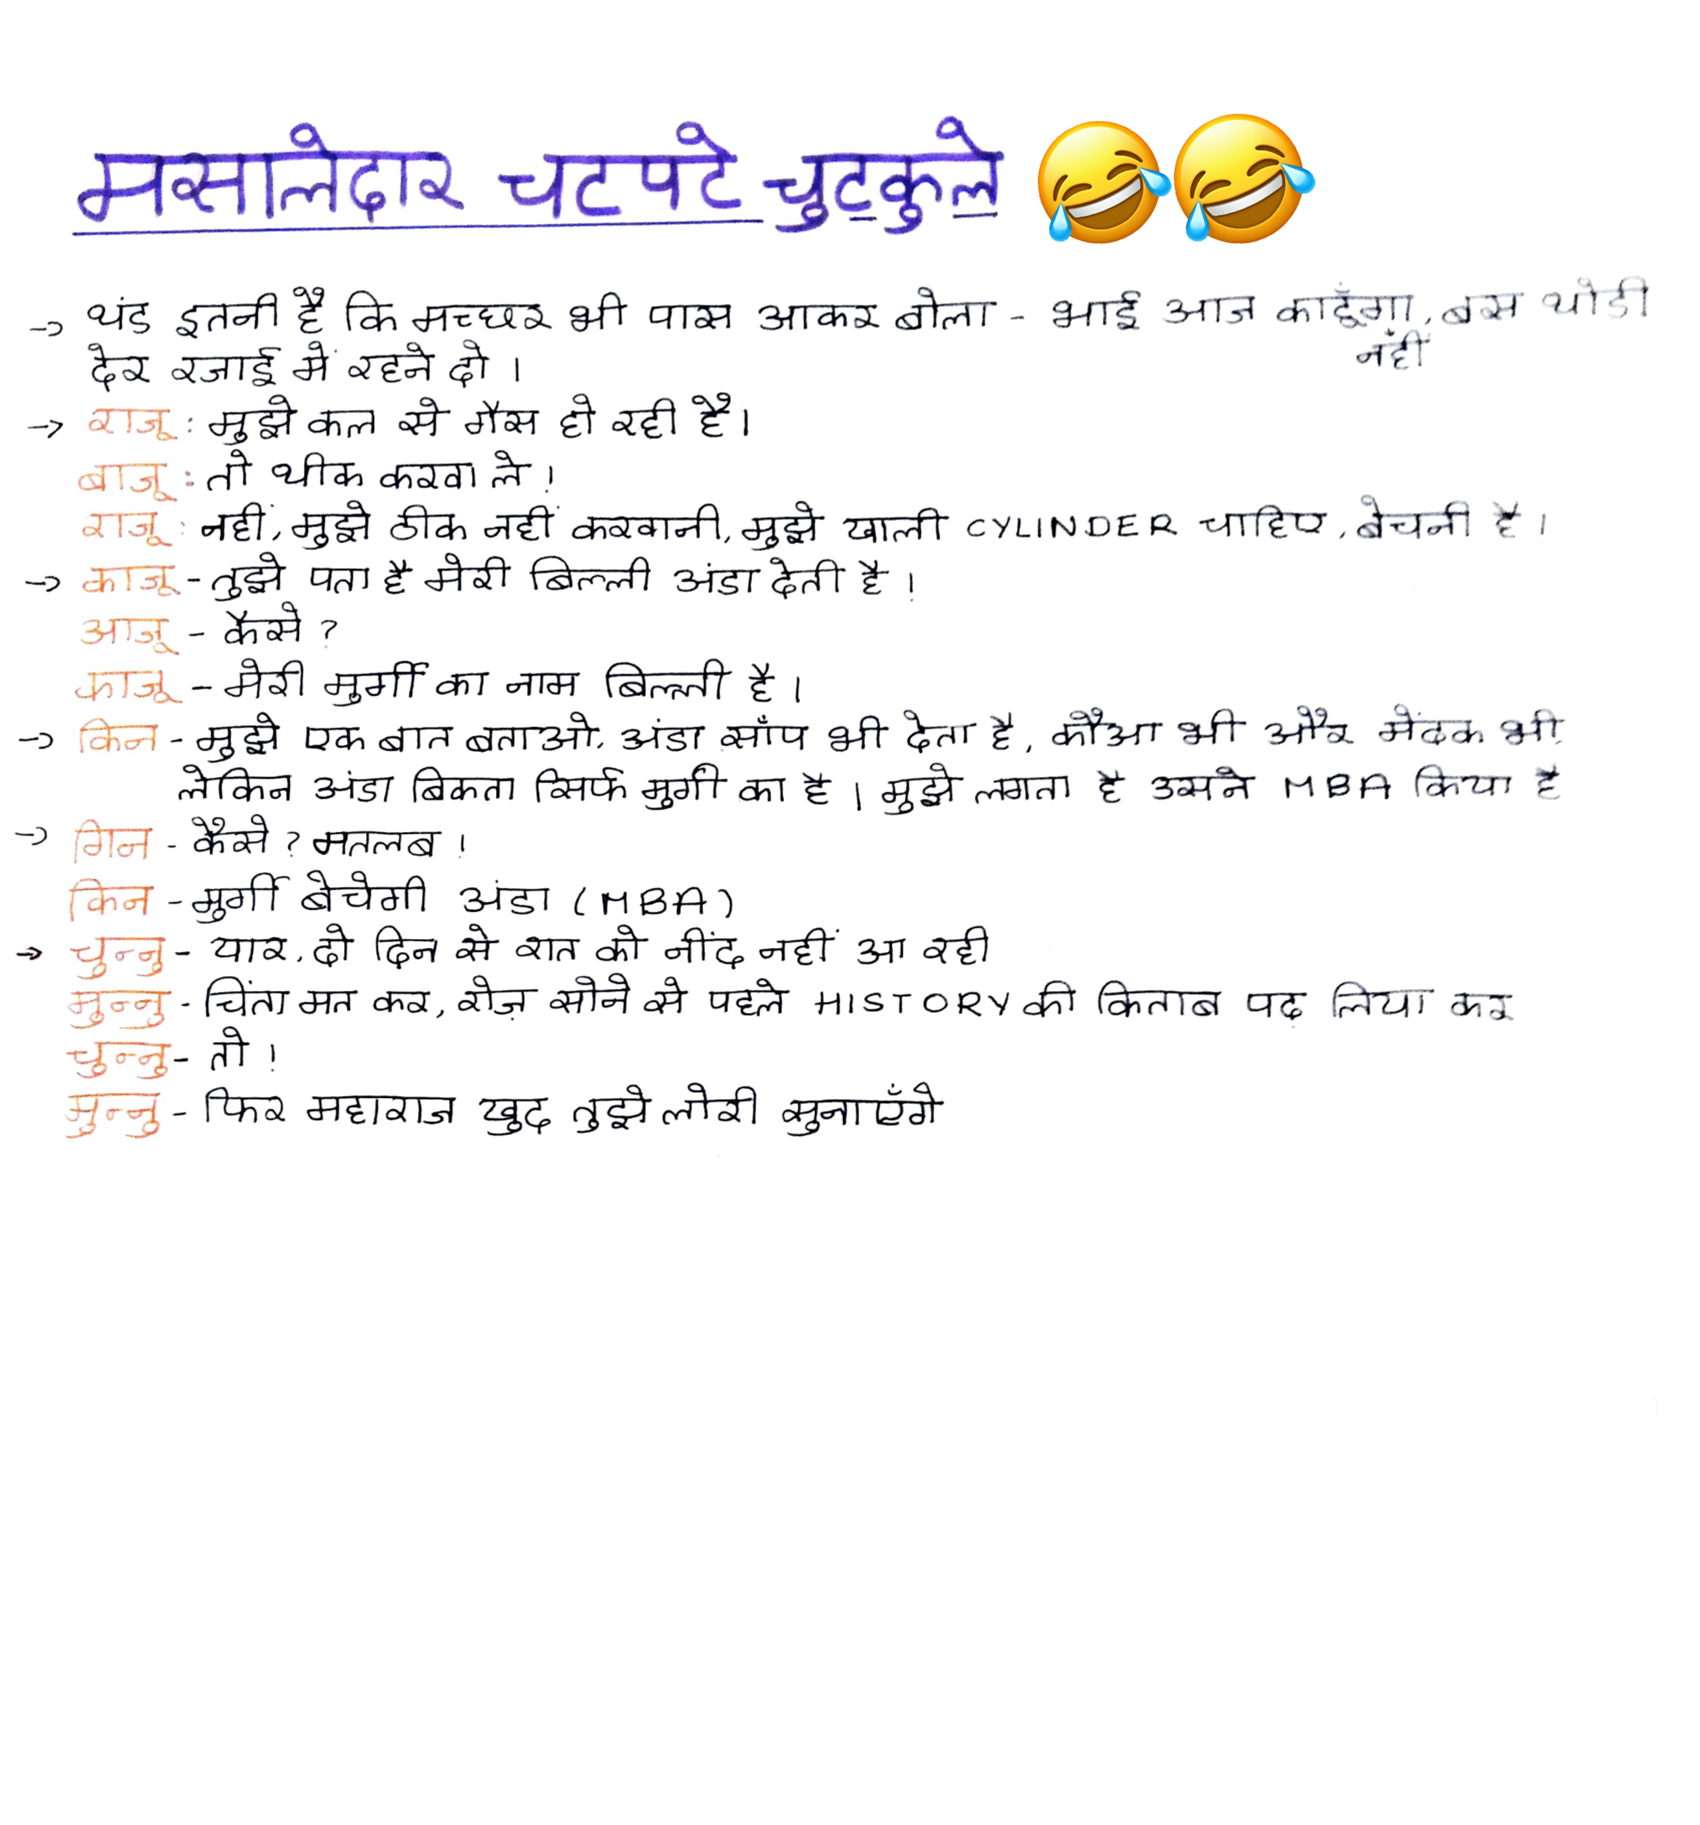 मसालेदार चटपटे चुटकुले 😂😂
→ थंड इतनी है कि मच्छर भी पास आकर बोला - भाई आज काटूँगा, बस थोडी
नहीं
देर रजाई में रहने दो ।
→ राजू : मुझे कल से गैस हो रही है।
बाजू : तो थीक करवा ले !
राजू : नहीं, मुझे ठीक नहीं करवानी, मुझे खाली CYLINDER चाहिए, बेचनी है ।
→ काजू - तुझे पता है मेरी बिल्ली अंडा देती है !
आजू - कैसे ?
काजू - मेरी मुर्गी का नाम बिल्ली है ।
→ किन - मुझे एक बात बताओ, अंडा साँप भी देता है, कौआ भी और मेंढक भी
लेकिन अंडा बिकता सिर्फ मुर्गी का है । मुझे लगता है उसने MBA किया है
→ गिन - कैसे ? मतलब !
किन - मुर्गी बेचेगी अंडा (MBA)
→ चुन्नु - यार, दो दिन से रात को नींद नहीं आ रही
मुन्नु - चिंता मत कर, रोज़ सोने से पहले HISTORY की किताब पढ़ लिया कर
चुन्नु - तो !
मुन्नु - फिर महाराज खुद तुझे लोरी सुनाएँगे